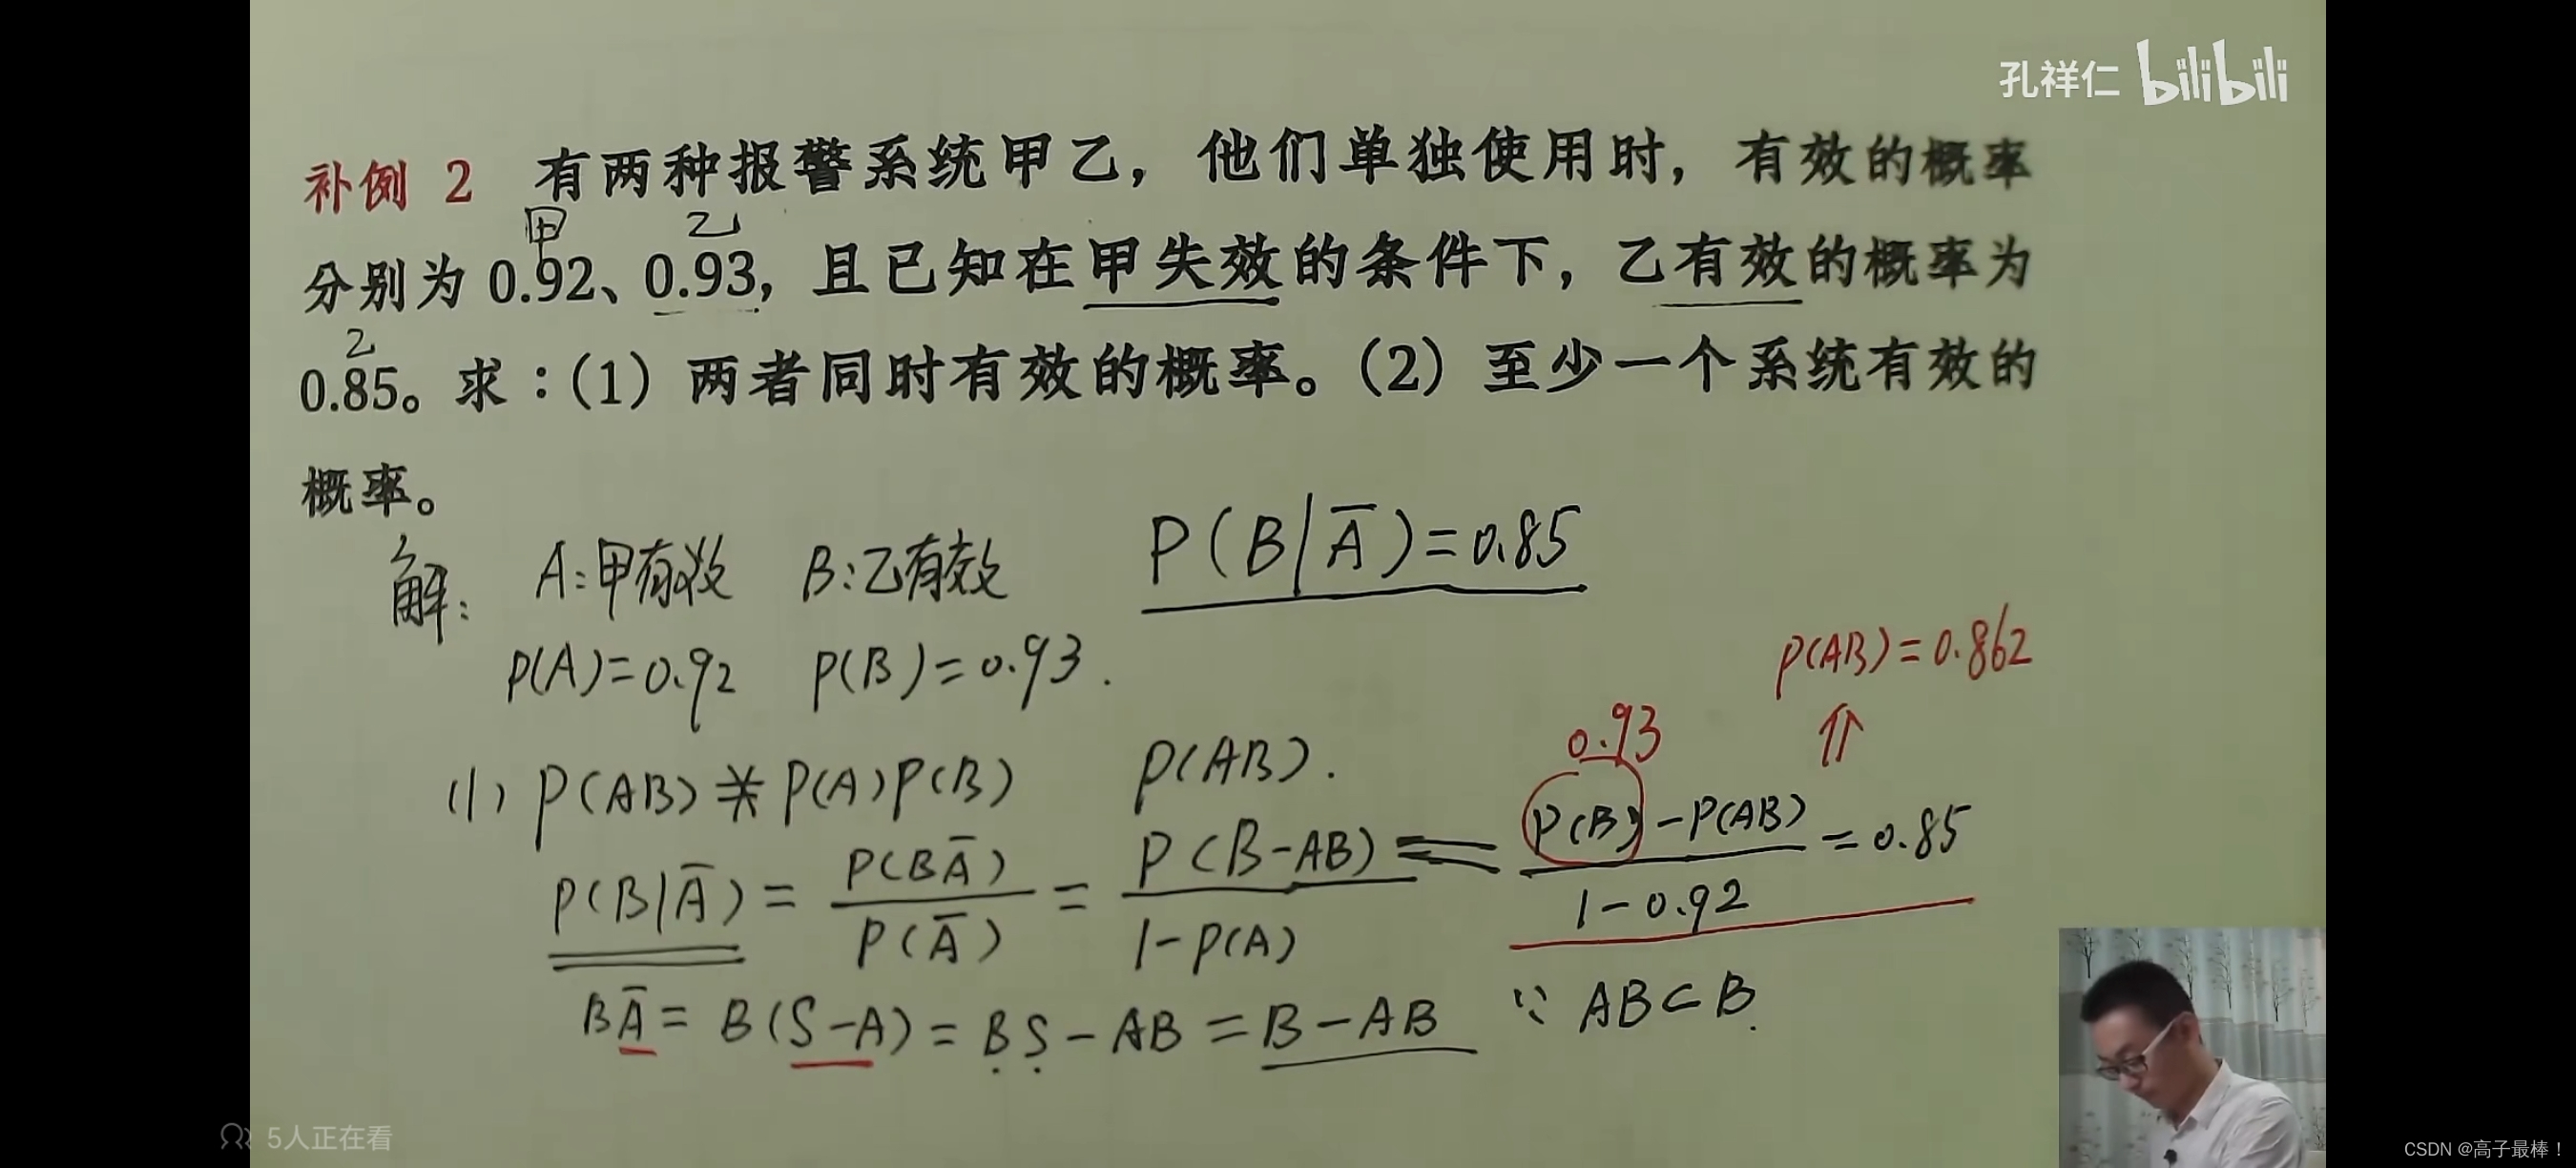 孔祥仁 bilibili
补例 2 有两种报警系统甲乙，他们单独使用时，有效的概率
甲 乙
分别为 0.92、0.93，且已知在甲失效的条件下，乙有效的概率为
乙
0.85。求：(1) 两者同时有效的概率。(2) 至少一个系统有效的
概率。
解： A:甲有效 B:乙有效 P(B|A̅)=0.85
P(A)=0.92 P(B)=0.93.
P(AB)=0.862
⇑
0.93
(1) P(AB) ≠ P(A)P(B) P(AB).
P(B|A̅) = P(BA̅)/P(A̅) = P(B-AB)/1-P(A) = P(B)-P(AB)/1-0.92 = 0.85
BA̅ = B(S-A) = BS-AB = B-AB ∵ AB⊂B.
5人正在看
CSDN @高子最棒！